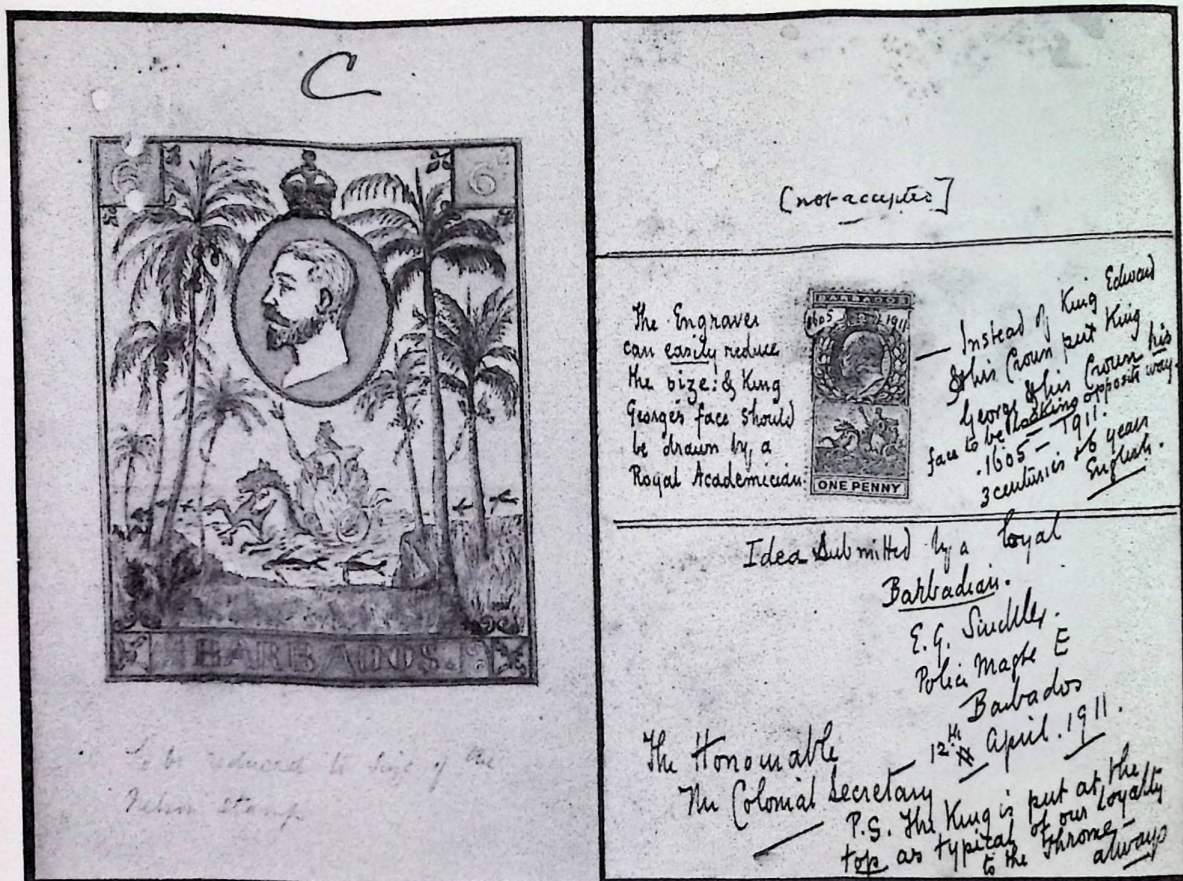 C
6
6
BARBADOS.
To be reduced to size of the
Nelson Stamp
[not accepted]
The Engraver
can easily reduce
the size: & King
George's face should
be drawn by a
Royal Academician.
BARBADOS
1605 1911
ONE PENNY
— Instead of King Edward
& his Crown put King
George & his Crown his
face to be looking opposite way.
.1605 — 1911.
3 centuries & 6 years
English.
Idea Submitted by a loyal
Barbadian.
E.G. Sinckler.
Police Magte E
Barbados
12th April. 1911.
The Honourable
The Colonial Secretary
P.S. The King is put at the
top as typical of our loyalty
to the Throne —
always